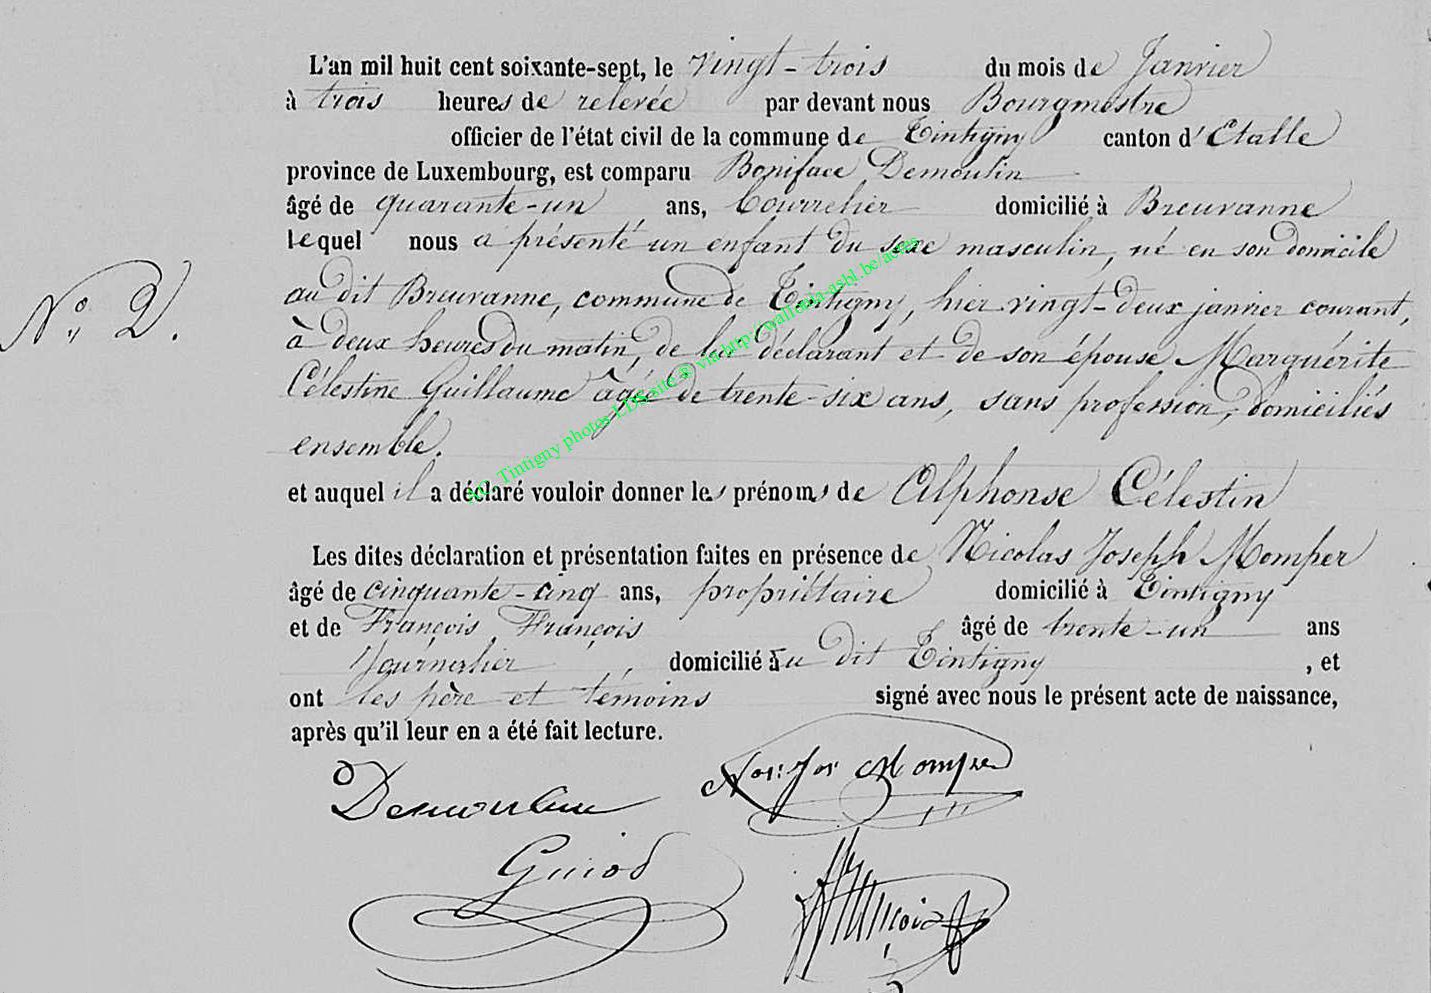 L'an mil huit cent soixante-sept, le vingt-trois du mois de Janvier
à trois heures de relevée par devant nous Bourgmestre
officier de l'état civil de la commune de Tintigny canton d'Etalle
province de Luxembourg, est comparu Boniface Demoulin
âgé de quarante-un ans, bourrelier domicilié à Breuvanne
lequel nous a présenté un enfant du sexe masculin, né en son domicile
au dit Breuvanne, commune de Tintigny, hier vingt-deux janvier courant,
N° 2.
à deux heures du matin, de lui déclarant et de son épouse Marguérite
Célestine Guillaume âgée de trente-six ans, sans profession, domiciliés
ensemble.
et auquel il a déclaré vouloir donner les prénoms de Alphonse Célestin
Les dites déclaration et présentation faites en présence de Nicolas Joseph Momper
âgé de cinquante-cinq ans, propriétaire domicilié à Tintigny
et de François François âgé de trente-un ans
Journalier, domicilié au dit Tintigny, et
ont les père et témoins signé avec nous le présent acte de naissance,
après qu'il leur en a été fait lecture.
Demoulin Nas: Jos Momper
Guiod François
AC. Tintigny photos LDS site © via http://wallonia-asbl.be/actes